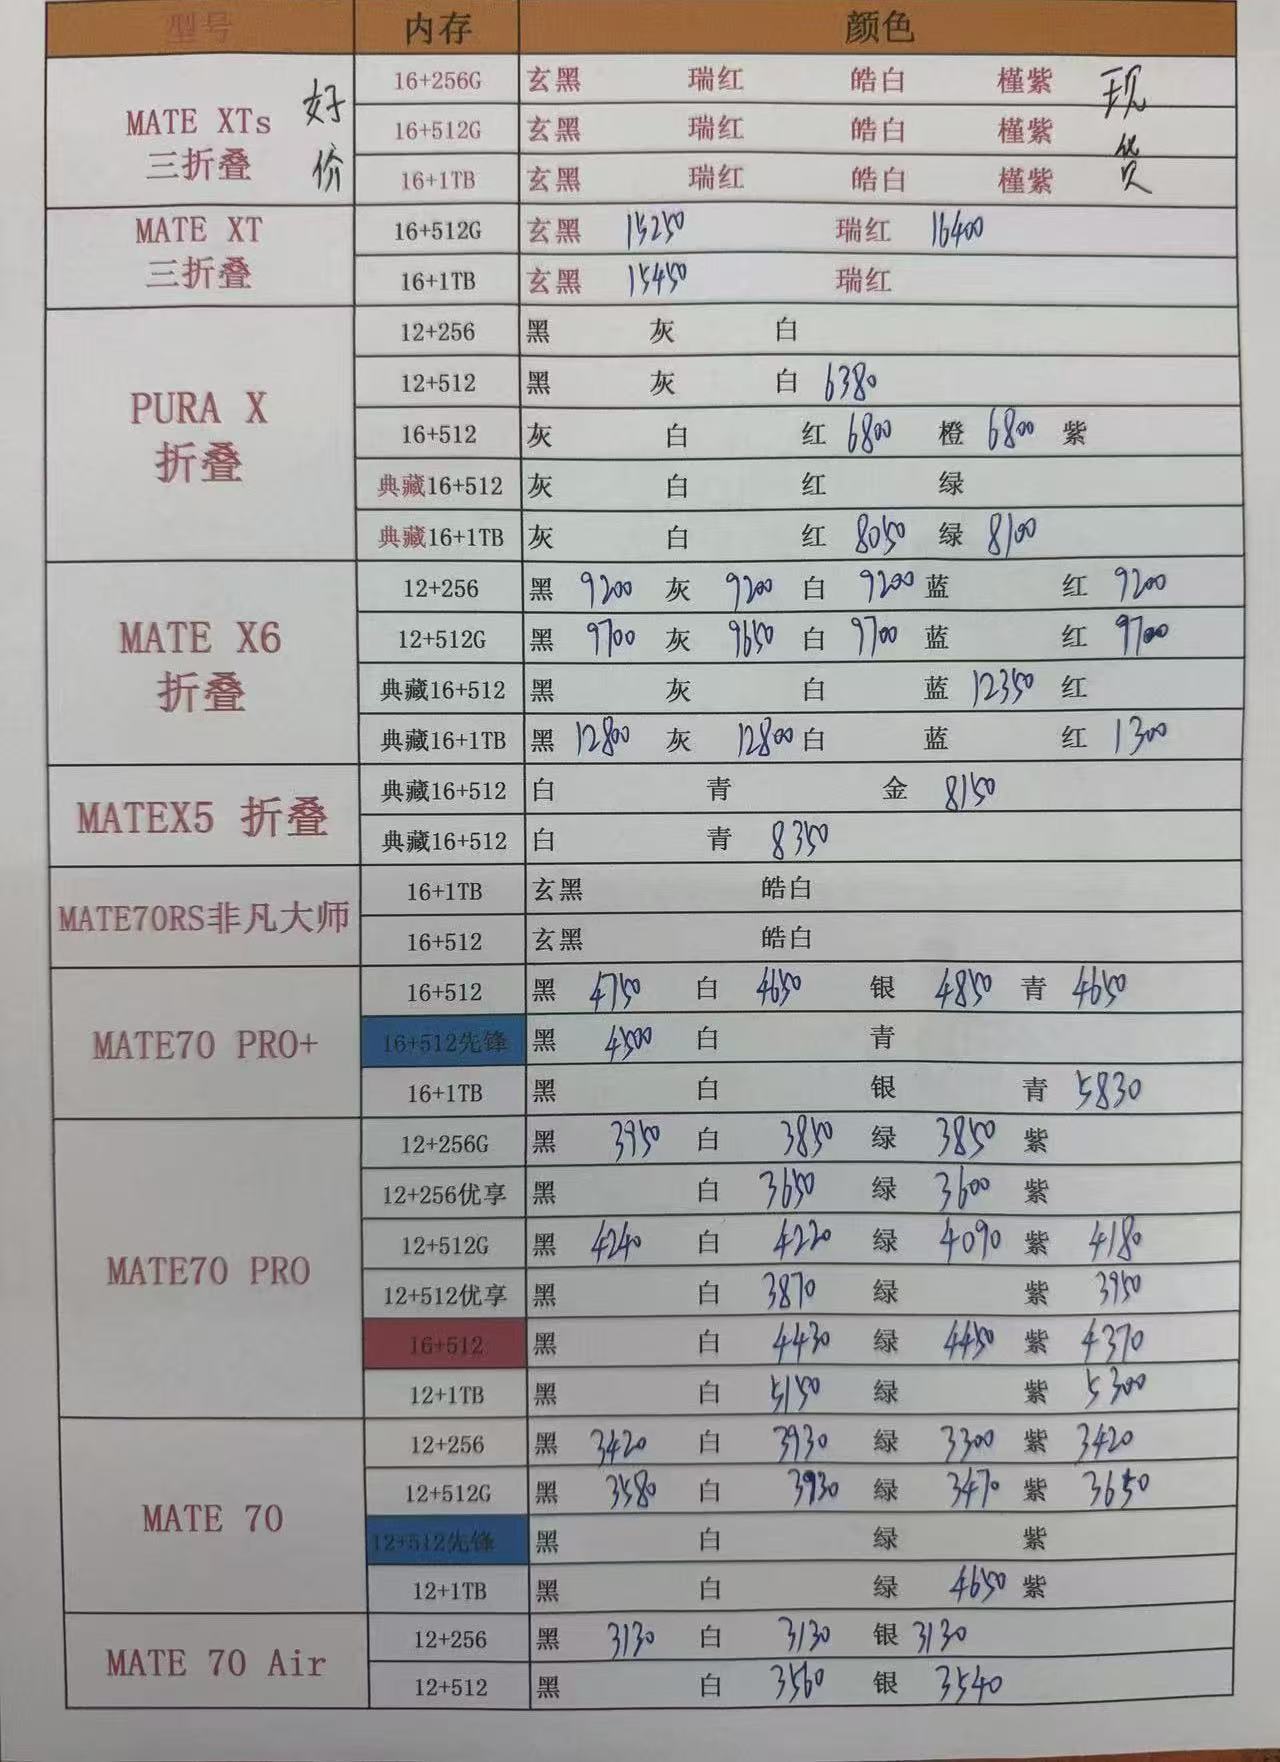 型号 内存 颜色
MATE XTs 三折叠 好价 现货
16+256G 玄黑 瑞红 皓白 槿紫
16+512G 玄黑 瑞红 皓白 槿紫
16+1TB 玄黑 瑞红 皓白 槿紫
MATE XT 三折叠
16+512G 玄黑 15250 瑞红 16400
16+1TB 玄黑 15450 瑞红
PURA X 折叠
12+256 黑 灰 白
12+512 黑 灰 白 6380
16+512 灰 白 红 6800 橙 6800 紫
典藏16+512 灰 白 红 绿
典藏16+1TB 灰 白 红 8050 绿 8100
MATE X6 折叠
12+256 黑 9200 灰 9200 白 9200 蓝 红 9200
12+512G 黑 9700 灰 9650 白 9700 蓝 红 9700
典藏16+512 黑 灰 白 蓝 12350 红
典藏16+1TB 黑 12800 灰 12800 白 蓝 红 1300
MATEX5 折叠
典藏16+512 白 青 金 8150
典藏16+512 白 青 8350
MATE70RS非凡大师
16+1TB 玄黑 皓白
16+512 玄黑 皓白
MATE70 PRO+
16+512 黑 4750 白 4650 银 4850 青 4650
16+512先锋 黑 4500 白 青
16+1TB 黑 白 银 青 5830
MATE70 PRO
12+256G 黑 3950 白 3850 绿 3850 紫
12+256优享 黑 白 3650 绿 3600 紫
12+512G 黑 4240 白 4220 绿 4090 紫 4180
12+512优享 黑 白 3870 绿 紫 3950
16+512 黑 白 4430 绿 4450 紫 4370
12+1TB 黑 白 5150 绿 紫 5300
MATE 70
12+256 黑 3420 白 3930 绿 3300 紫 3420
12+512G 黑 3580 白 3930 绿 3470 紫 3650
12+512先锋 黑 白 绿 紫
12+1TB 黑 白 绿 4650 紫
MATE 70 Air
12+256 黑 3130 白 3130 银 3130
12+512 黑 白 3560 银 3540